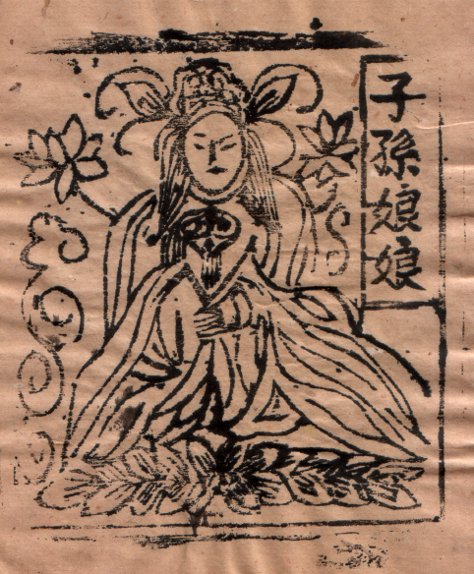 子孫娘娘